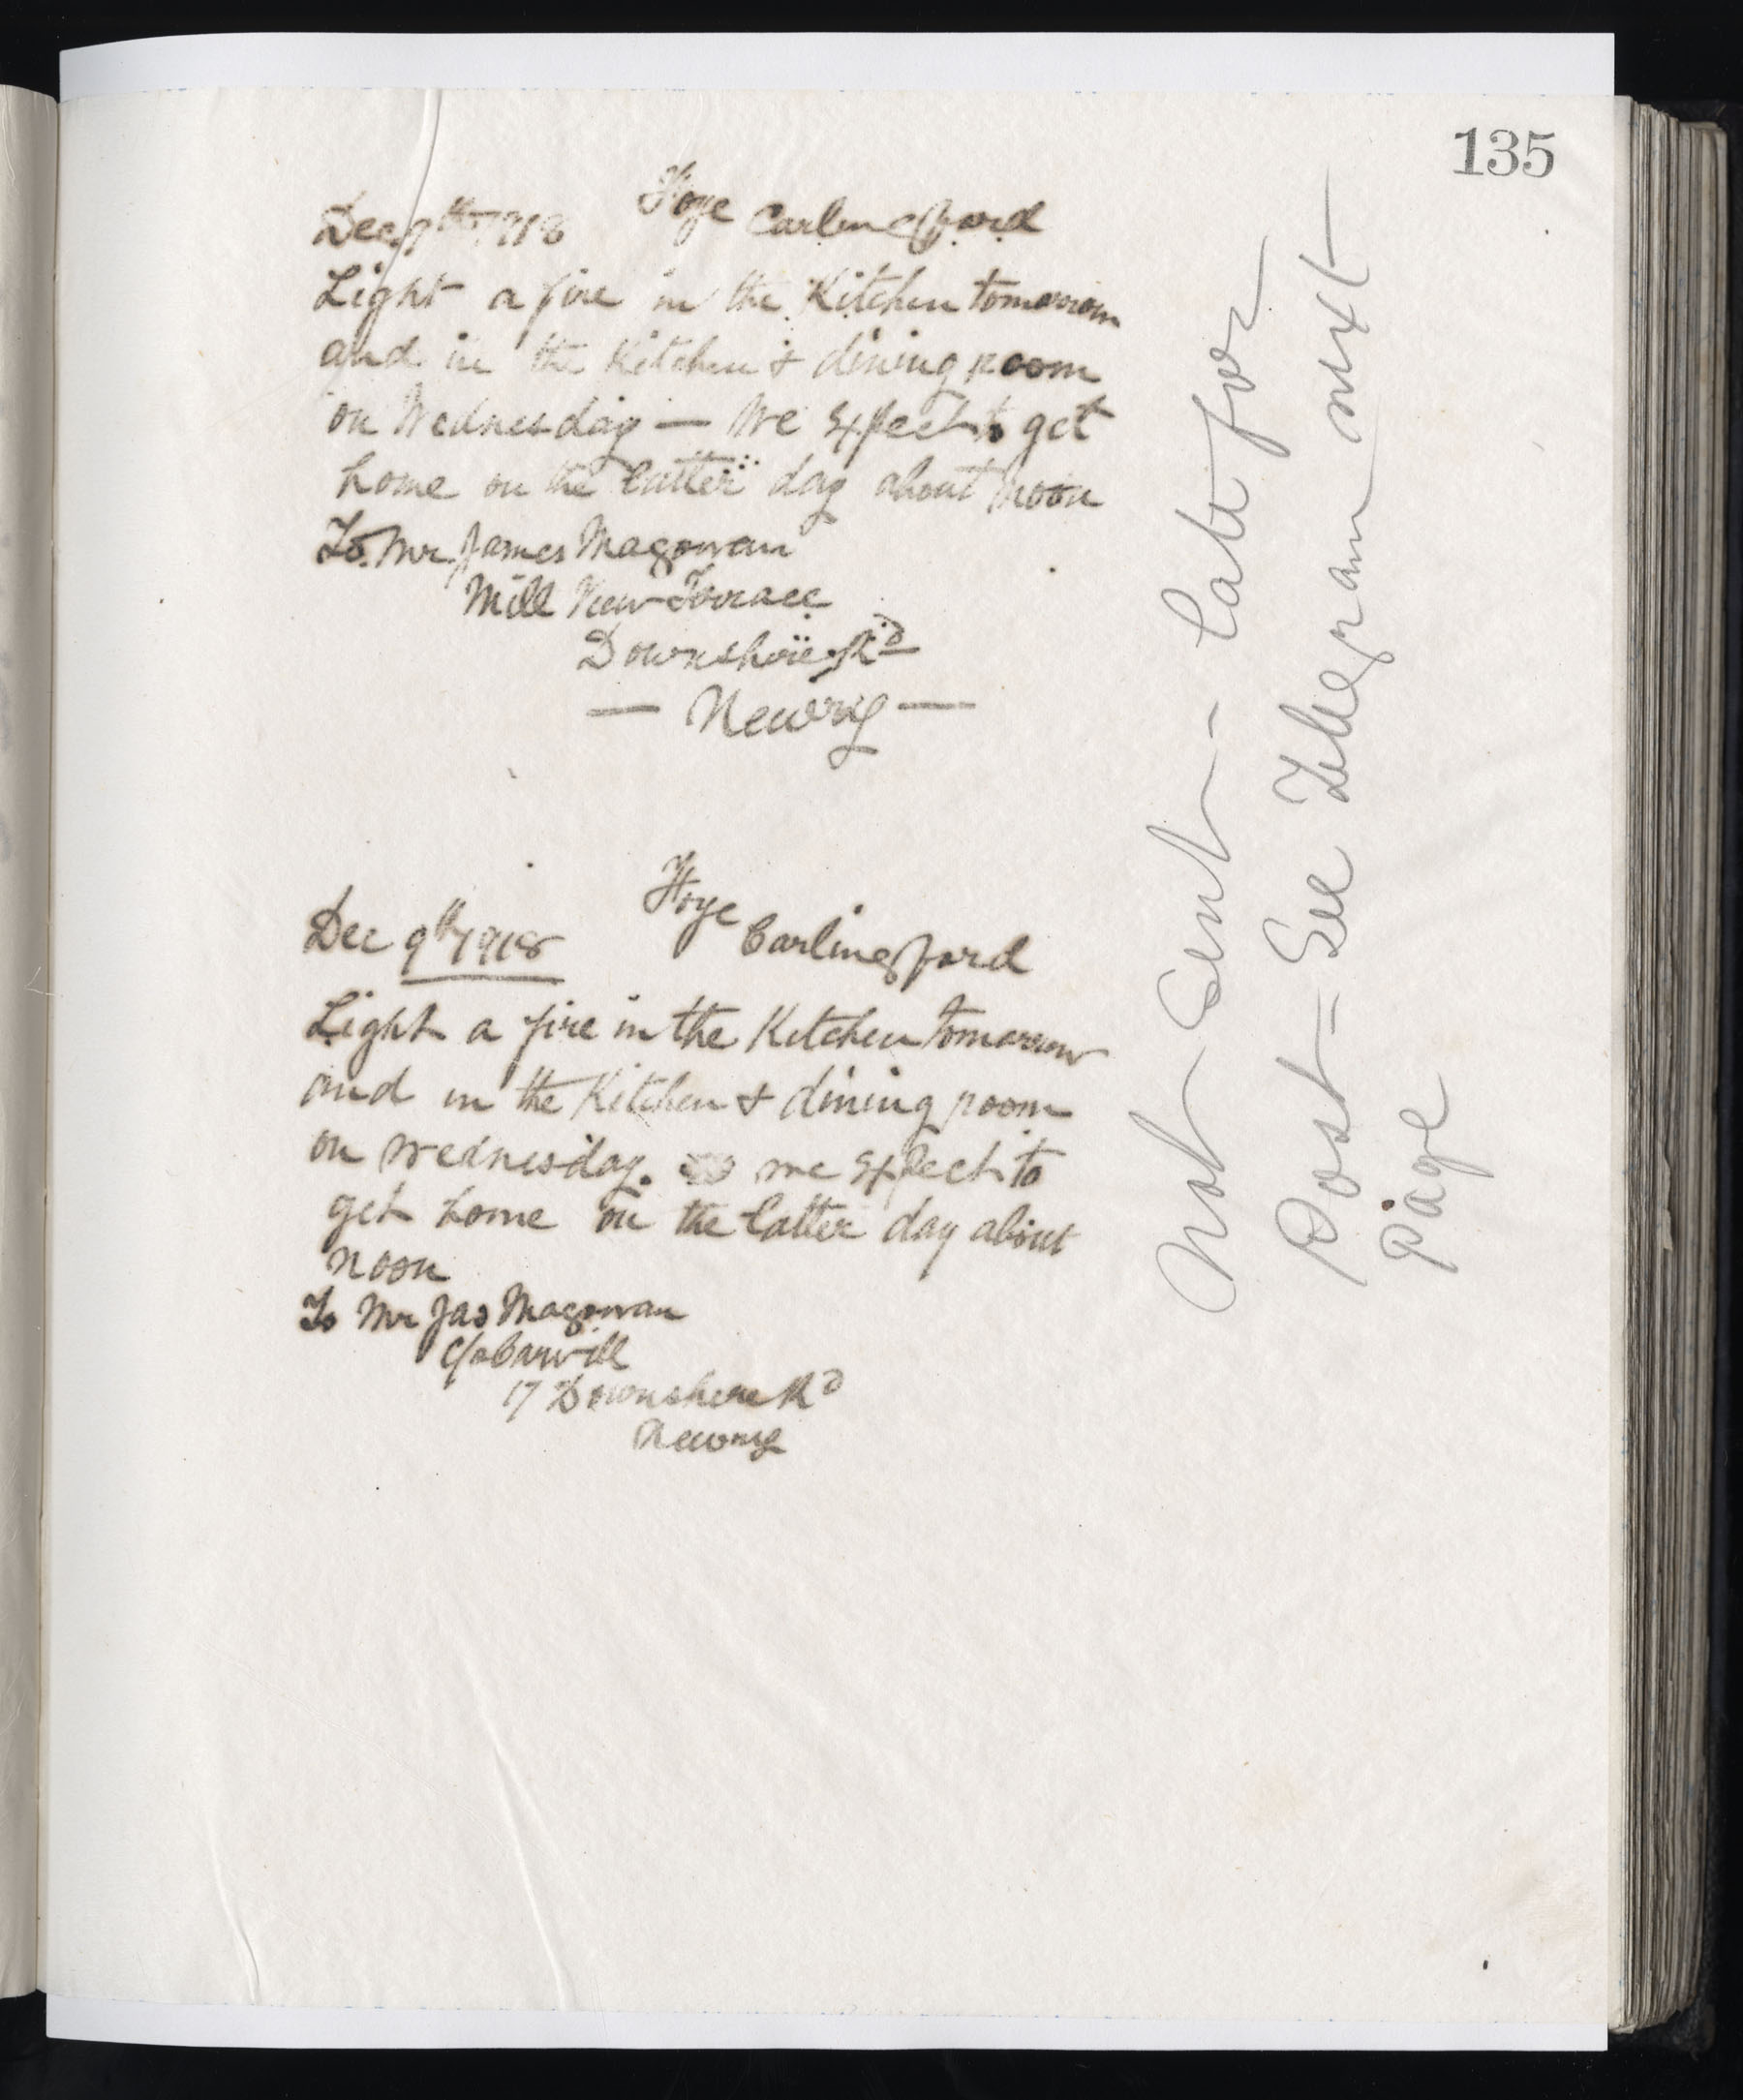 135
Dec 9th 1918 Foye Carlingford
Light a fire in the Kitchen tomorrow
and in the Kitchen & dining room
on Wednesday — We expect to get
home on the latter day about noon
To Mr James Magowan
Mill View Terrace
Downshire Rd
— Newry —
Dec 9th 1918 Foye Carlingford
Light a fire in the Kitchen tomorrow
and in the Kitchen & dining room
on Wednesday. we expect to
get home on the latter day about
noon
To Mr Jas Magowan
c/o Carvill
17 Downshire Rd
Newry
Not Sent - late for
Post = See Telegram next
page